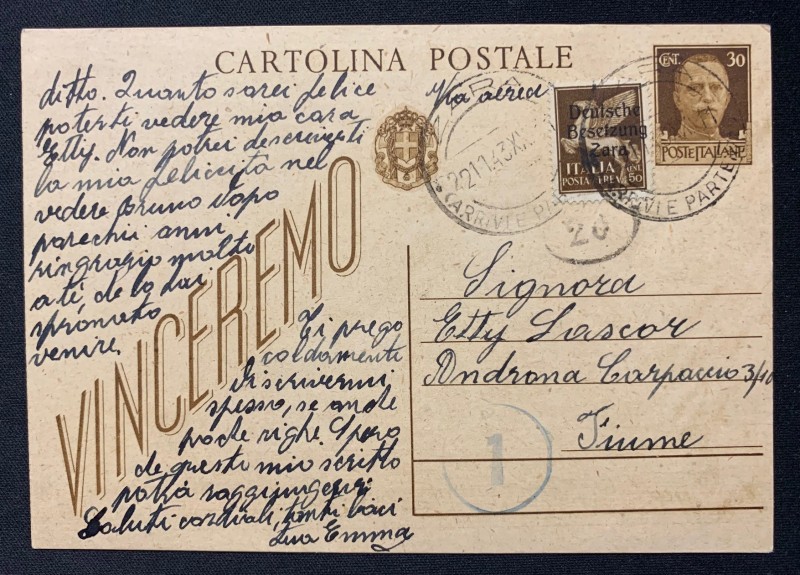 CARTOLINA POSTALE
CENT. 30
POSTE ITALIANE
Deutsche
Besetzung
Zara
ITALIA
POSTA AEREA
CENT 50
ZARA
22.11.43.XX
(ARRIVI E PARTENZE)
20
Via aerea
ditto. Quanto sarei felice
poterti vedere mia cara
Etty. Non potrei descriverti
la mia felicità nel
vedere Bruno dopo
parechii anni.
ringrazio molto
a te, che lo hai
spronato
venire.
Ti prego
caldamente
di scrivermi
spesso, se anche
poche righe. Spero
che questo mio scritto
potrà raggiungervi
Saluti cordiali, tanti baci
tua Emma
VINCEREMO
Signora
Etty Lascor
Androna Carpaccio 3/10
Fiume
1